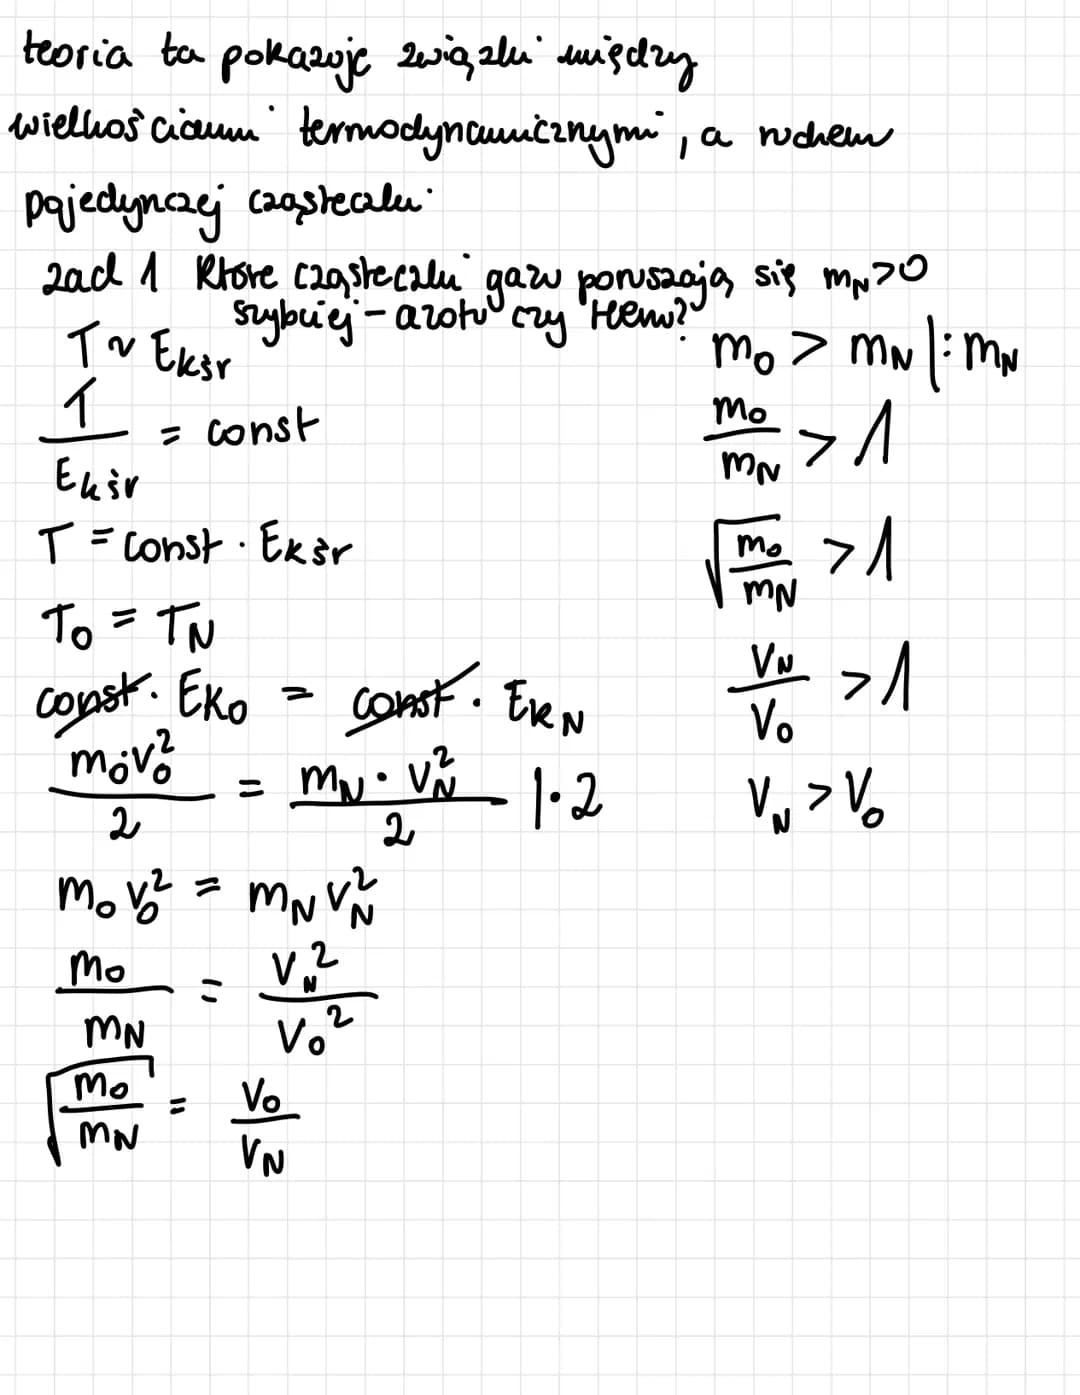 teoria ta pokazuje związki między
wielkościami termodynamicznymi, a ruchem
pojedynczej cząsteczki.
zad 1 Które cząsteczki gazu poruszają się
szybciej - azotu czy tlenu?
m_N > 0
T ~ Ekśr
T / Ekśr = const
T = const · Ekśr
T_O = T_N
const · Ek_O = const · Ek_N
m_O · v_O² / 2 = m_N · v_N² / 2 | · 2
m_O v_O² = m_N v_N²
m_O / m_N = v_N² / v_O²
√(m_O / m_N) = v_O / v_N
m_O > m_N | : m_N
m_O / m_N > 1
√(m_O / m_N) > 1
v_N / v_O > 1
v_N > v_O